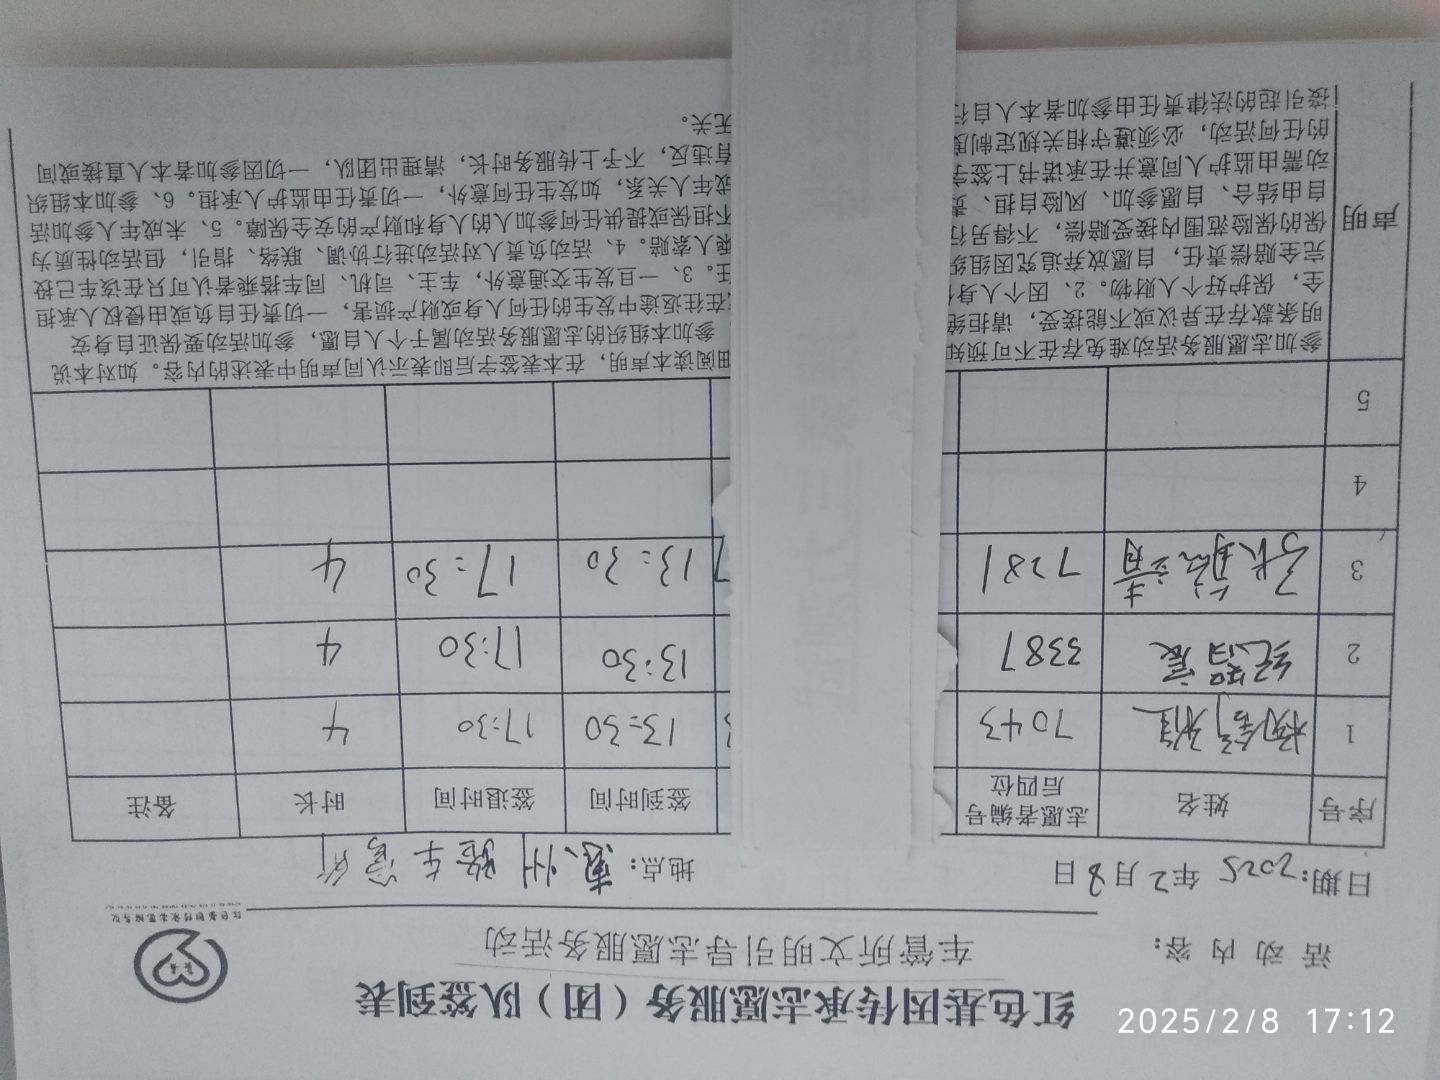 红色基因传承志愿服务（团）队签到表
活动内容： 车管所文明引导志愿服务活动
日期：2025年2月8日 地点：惠州 车管所
序号 姓名 志愿者编号后四位 签到时间 签退时间 时长 备注
1 7043 13:30 17:30 4
2 纪智宸 3387 13:30 17:30 4
3 7281 13:30 17:30 4
4
5
声明
参加志愿服务活动难免存在不可预知 阅读本声明，在本表签字后即表示认同声明中表述的内容。如对本说
明条款存在异议或不能接受，请拒绝 参加本组织的志愿服务活动属于个人自愿，参加活动要保证自身安
全，保护好个人财物。2、因个人身 在往返途中发生的任何人身或财产损害，一切责任自负或由侵权人承担
完全赔偿责任，自愿放弃追究因组织 任。3、一旦发生交通意外，车主、司机、同车搭乘者认可只在该车已投
保的保险范围内接受赔偿，不得另行 乘人索赔。4、活动负责人对活动进行协调、联络、指引，但活动性质为
自由结合、自愿参加、风险自担、责 不担保或提供任何参加人的人身和财产的安全保障。5、未成年人参加活
动需由监护人同意并在承诺书上签字 成年人关系，如发生任何意外，一切责任由监护人承担。6、参加本组织
的任何活动，必须遵守相关规定制度 有违反，不予上传服务时长，清理出团队，一切因参加者本人直接或间
接引起的法律责任由参加者本人自行 无关。
2025/2/8 17:12